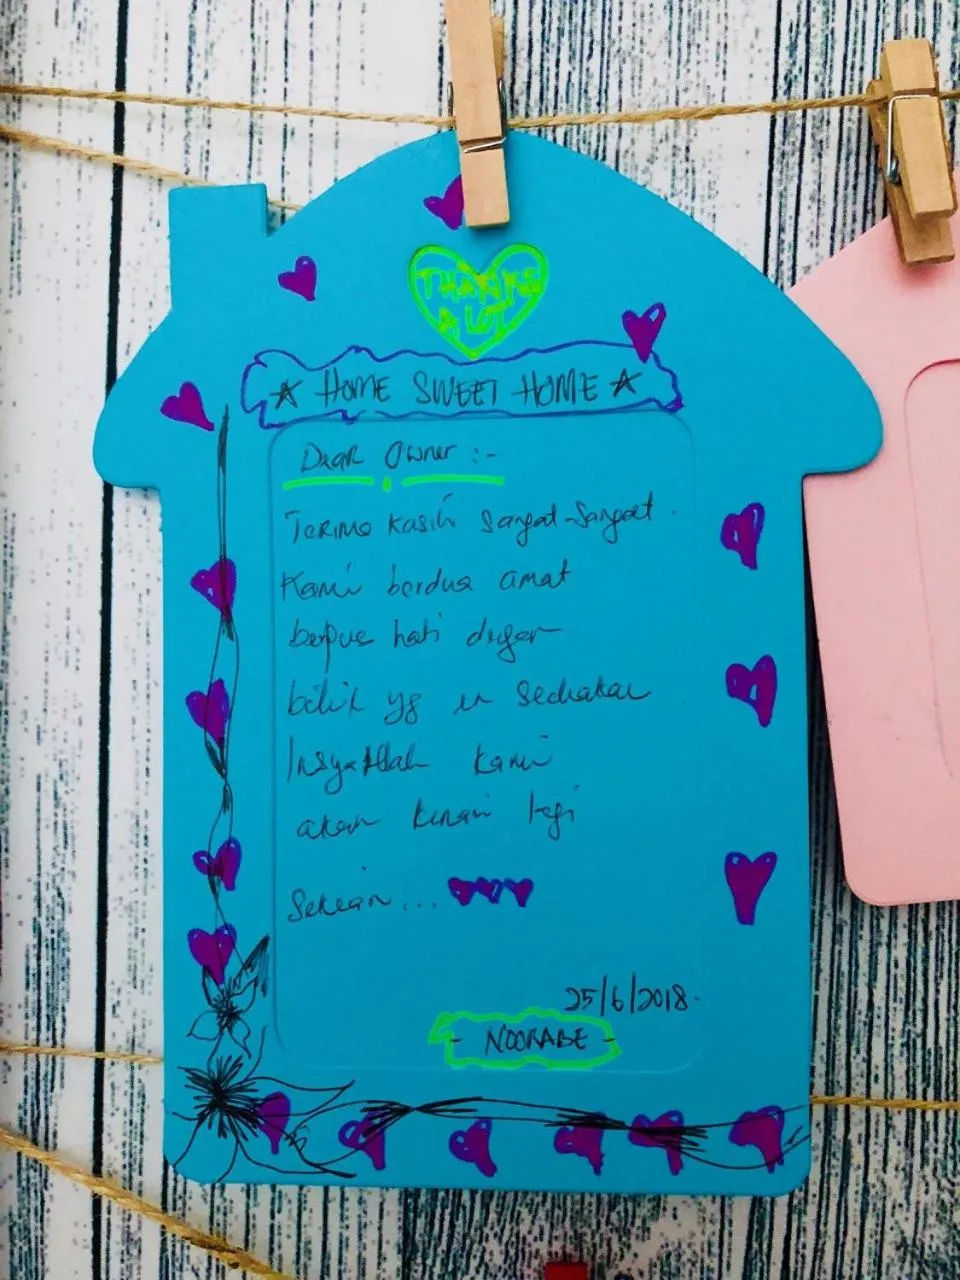 THANKS
A LOT
☆ HOME SWEET HOME ☆
Dear Owner :-
Terima Kasih Sangat-Sangat.
Kami berdua amat
berpuas hati dgan
bilik yg di sediakan
InsyaAllah kami
akan kunari lagi
Sekian...
25/6/2018.
- NOORABE -